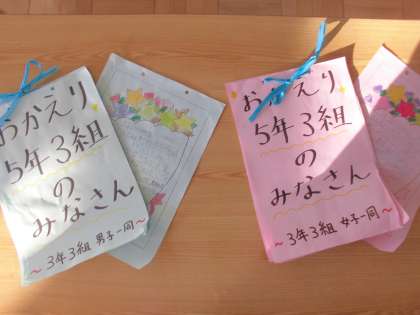 おかえり
5年3組
の
みなさん
～3年3組 男子一同～
おかえり
5年3組
の
みなさん
～3年3組 女子一同～